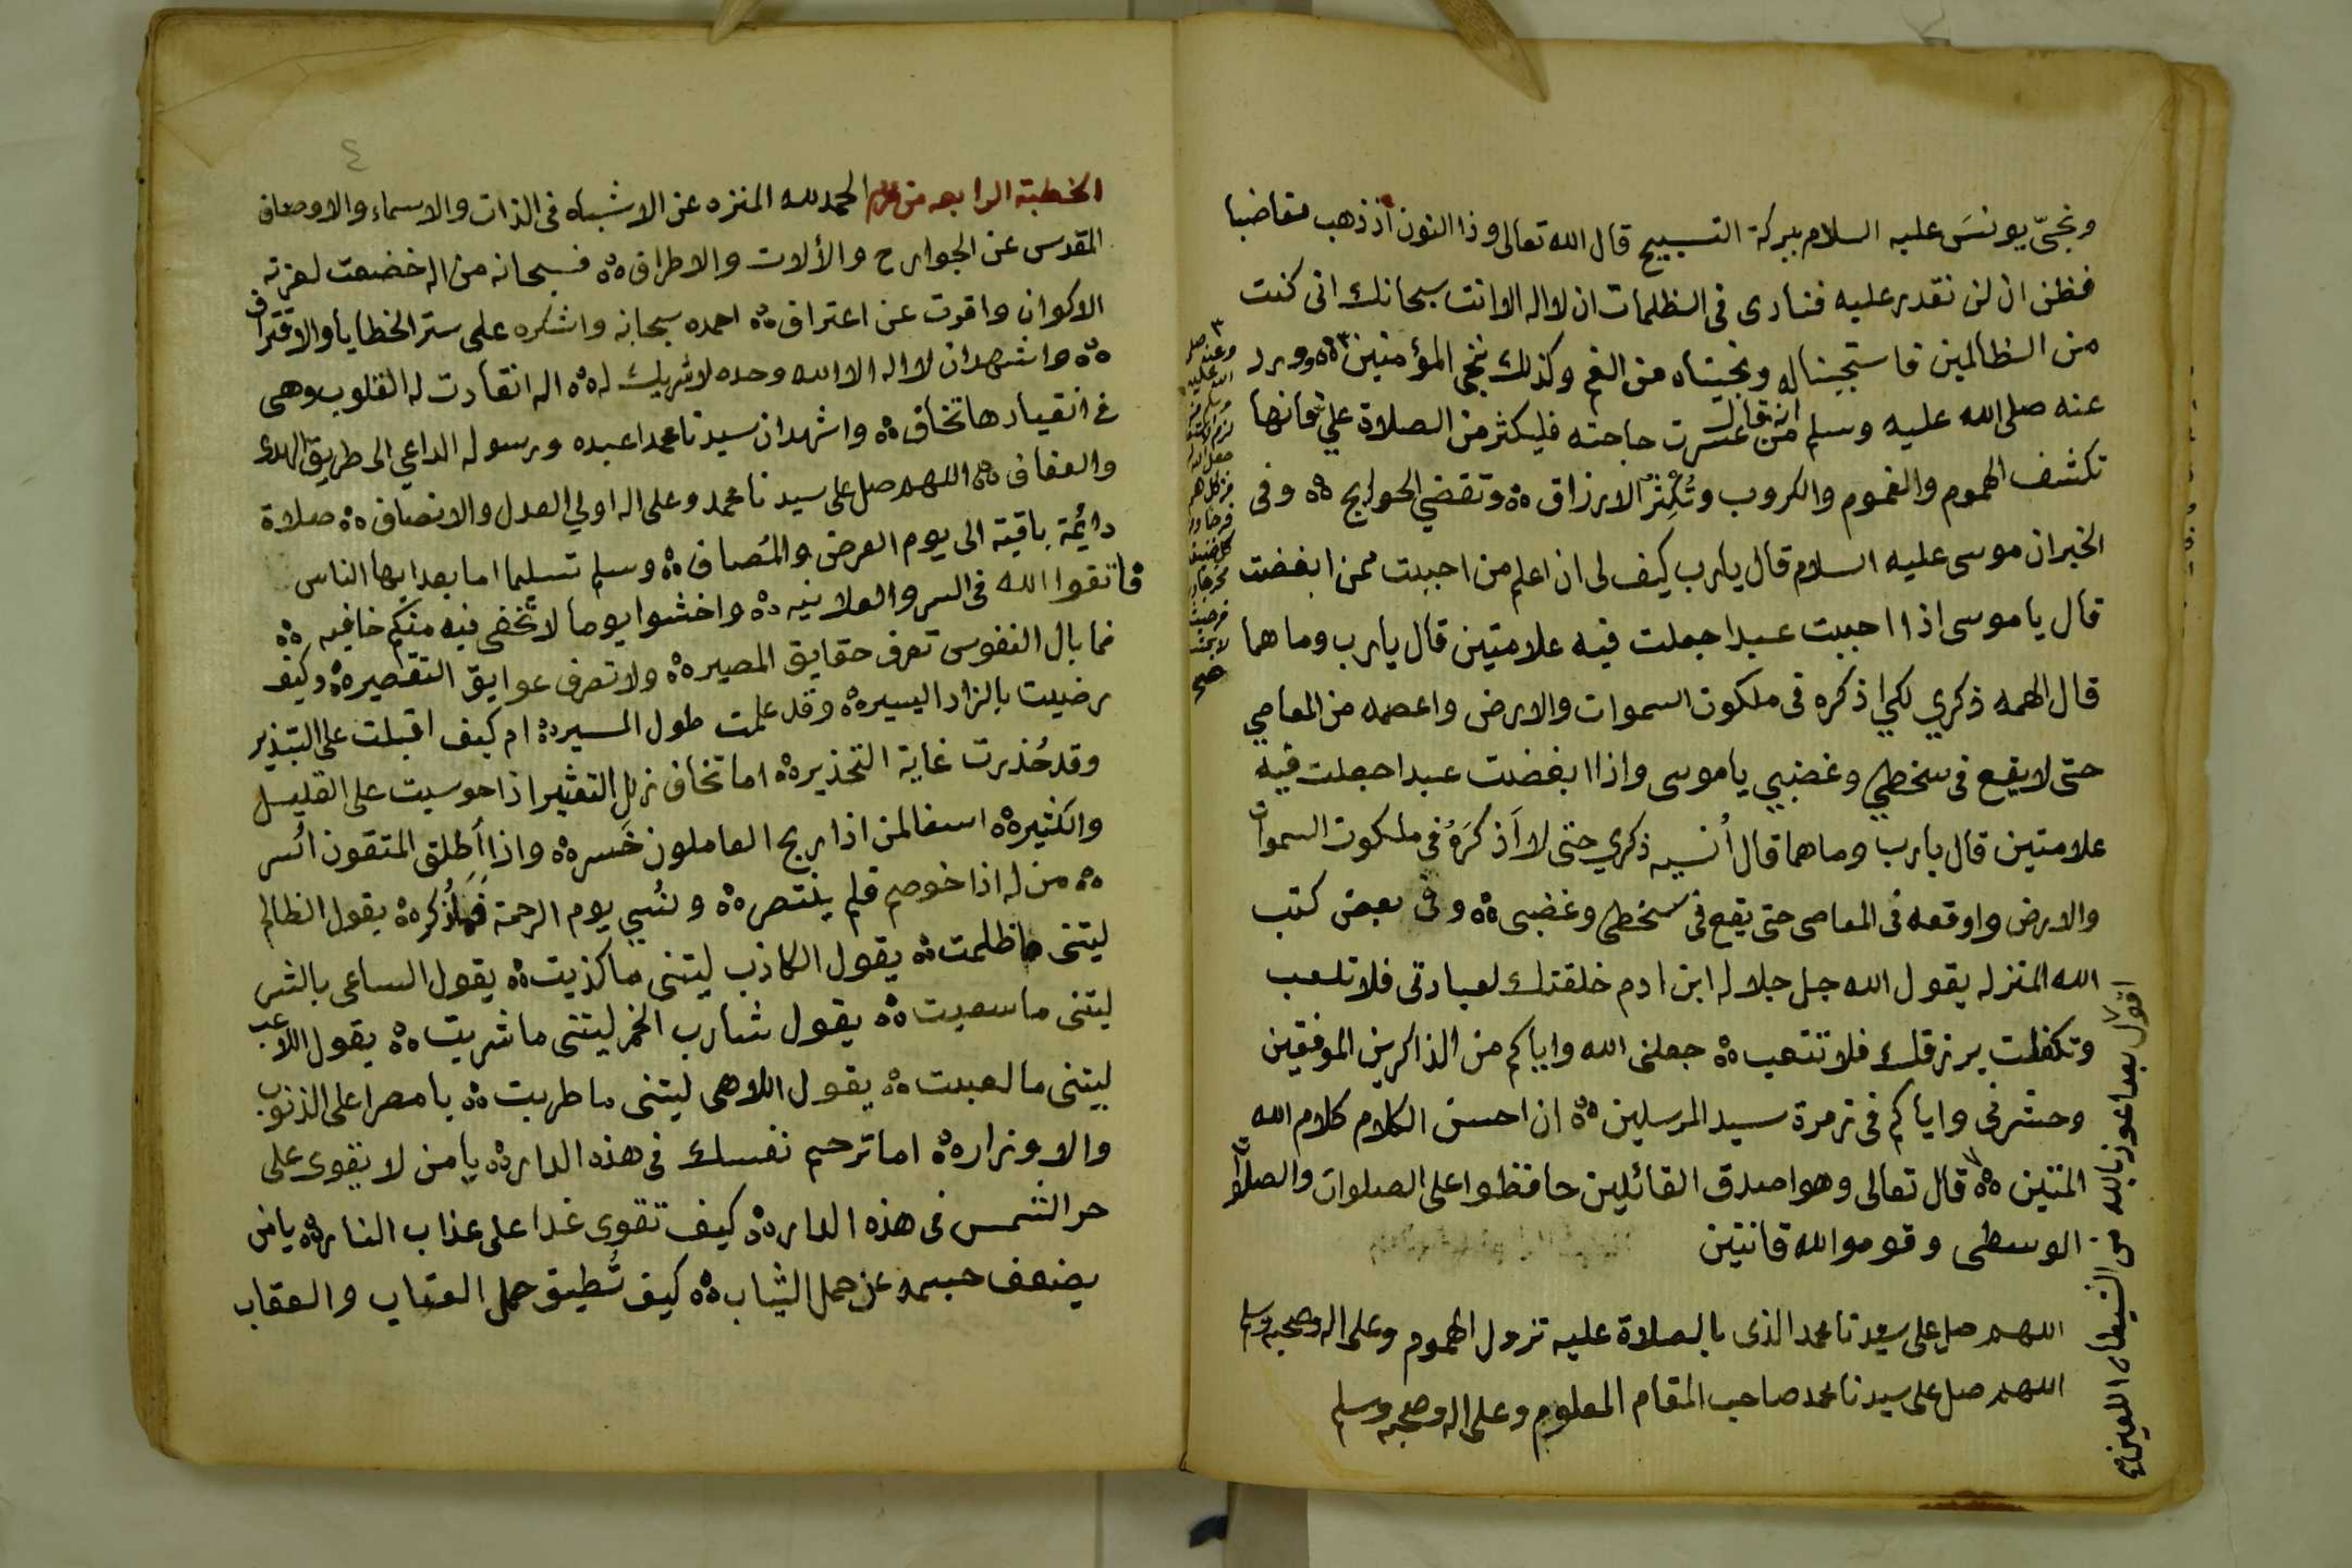 ونجّى يونسَ عليه السلام ببركة التسبيح قال الله تعالى وذا النون اذ ذهب مغاضبا
فظن ان لن نقدر عليه فنادى فى الظلمات ان لا اله الا انت سبحانك انى كنت
من الظالمين فاستجبنا له ونجيناه من الغم وكذلك ننجى المؤمنين ٥٥ وورد
عنه صلى الله عليه وسلم انه قال من عسرت حاجته فليكثر من الصلاة علي فانها
تكشف الهموم والغموم والكروب وتُكْثِرُ الارزاق ٥٥ وتقضي الحوايج ٥٥ وفى
الخبر ان موسى عليه السلام قال يارب كيف لى ان اعلم من احببت ممن ابغضت
قال ياموسى اذا احببت عبدا جعلت فيه علامتين قال يارب وما هما
قال الهمه ذكري لكي اذكره فى ملكوت السموات والارض واعصمه من المعاصي
حتى لا يقع فى سخطي وغضبي ياموسى واذا ابغضت عبدا جعلت فيه
علامتين قال يارب وما هما قال أنسيه ذكري حتى لا اَذكرَهُ في ملكوت السموات
والارض واوقعه فى المعاصى حتى يقع فى سخطى وغضبى ٥٥ وفى بعض كتب
الله المنزله يقول الله جل جلاله ابن ادم خلقتك لعبادتى فلا تلعب
وتكفلت برزقك فلا تتعب ٥٥ جعلنى الله واياكم من الذاكرين الموفقين
وحشرنى واياكم فى زمرة سيد المرسلين ٥٥ ان احسن الكلام كلام الله
المتين ٥٥ قال تعالى وهو اصدق القائلين حافظوا على الصلوات والصلاة
الوسطى وقوموا لله قانتين
اللهم صل على سيدنا محمد الذى بالصلاة عليه تزول الهموم وعلى اله وصحبه وسلم
اللهم صل على سيدنا محمد صاحب المقام المعلوم وعلى اله وصحبه وسلم
اقول بعد اعوذ بالله من الشيطان اللعين
٤
الخطبة الرابعه من محرم الحمد لله المنزه عن الاشباه فى الذات والاسماء والاوصاف
المقدس عن الجوارح والألات والاطراف ٥٥ فسبحانه من اله خضعت لعزته
الاكوان واقرت عن اعتراف ٥٥ احمده سبحانه واشكره على ستر الخطايا والاقتراف
٥٥ واشهد ان لا اله الا الله وحده لا شريك له ٥٥ اله انقادت له القلوب وهى
فى انقيادها تخاف ٥٥ واشهد ان سيدنا محمدا عبده ورسوله الداعي الى طريق الهدى
والعفاف ٥٥ اللهم صل على سيدنا محمد وعلى اله اولي العدل والانصاف ٥٥ صلاة
دائمة باقية الى يوم العرض والمُصاف ٥٥ وسلم تسليما اما بعد ايها الناس
فاتقوا الله فى السر والعلانيه ٥٥ واخشوا يوما لا تخفى فيه منكم خافيه ٥٥
فما بال النفوس تعرف حقايق المصير ٥٥ ولا تعرف عوايق التقصير ٥٥ وكيف
رضيت بالزاد اليسير ٥٥ وقد علمت طول المسير ٥٥ ام كيف اقبلت على التبذير
وقد حُذرت غاية التحذير ٥٥ اما تخاف زلل التعثير اذا حوسبت على القليل
والكثير ٥٥ اسفا لمن اذا ربح العاملون خَسر ٥٥ واذا أُطلق المتقون اُسر
٥٥ من له اذا خوصم فلم ينتصر ٥٥ ونُسي يوم الرحمة فما ذُكر ٥٥ يقول الظالم
ليتنى ما ظلمت ٥٥ يقول الكاذب ليتنى ما كذبت ٥٥ يقول الساعى بالشر
ليتنى ما سعيت ٥٥ يقول شارب الخمر ليتنى ما شربت ٥٥ يقول اللاعب
ليتنى ما لعبت ٥٥ يقول اللاهى ليتنى ما طربت ٥٥ يا مصرا على الذنوب
والاوزار ٥٥ اما ترحم نفسك فى هذه الدار ٥٥ يا من لا يقوى على
حر الشمس فى هذه الدار ٥٥ كيف تقوى غدا على عذاب النار ٥٥ يا من
يضعف جسمه عن حمل الثياب ٥٥ كيف تُطيق حمل العتاب والعقاب